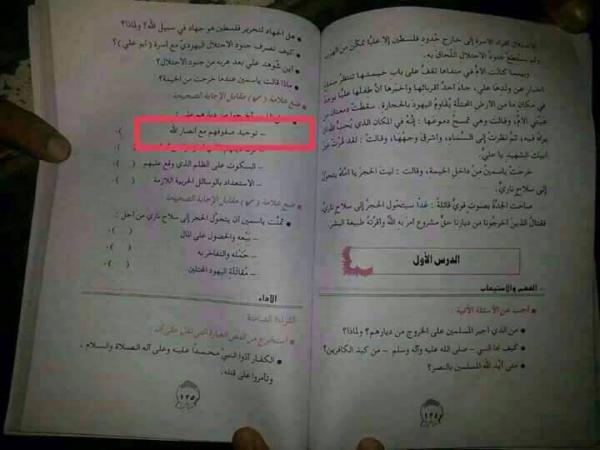 الاحتلال أفراد الأسرة إلى خارج حدود فلسطين إلا عليًّا تمكّن من الهرب
ولم يستطع جنود الاحتلال اللحاق به.
وبينما كانت الأم في مساها تقف على باب خيمتها تنتظر سماع
أخبار عن ولدها علي، جاء أحد أقربائها وأخبرها أن طفلها عليًّا يوجد
في مكان ما من الأرض المحتلة يقاوم اليهود بالحجارة. سقطت دمعتان من
عيني الأم، وقالت وهي تمسح دموعها : إنه في المكان الذي يحب الله أن
يراه فيه، ثم نظرت إلى السماء، وأشرق وجهها، وقالت : لقد قررت عن
أبيك الشهيد يا علي.
خرجت ياسمين من داخل الخيمة، وقالت : ليت الحجر يا أماه يتحول
إلى سلاح ناري.
صاحت الجدة بصوت قوي قائلة : غدًا سيتحول الحجر إلى سلاح ناري
فقتال الذين أخرجونا من ديارنا حق مشروع أمر به الله وأقرته طبيعة البشر.
الدرس الأول
الفهم والاستيعاب
أجب عن الأسئلة الآتية :
• من الذي أجبر المسلمين على الخروج من ديارهم؟ ولماذا؟
• كيف نجا النبي – صلى الله عليه وآله وسلم – من كيد الكافرين؟
• متى أيّد الله المسلمين بالنصر؟
١٣٤
• هل الجهاد لتحرير فلسطين هو جهاد في سبيل الله؟ ولماذا؟
• كيف تصرف جنود الاحتلال اليهودي مع أسرة (أبو علي)؟
• أين شوهد علي بعد هربه من جنود الاحتلال؟
• ماذا قالت ياسمين عندما خرجت من الخيمة؟
ضع علامة (✓) مقابل الإجابة الصحيحة
من ديارهم على :
– توحيد صفوفهم مع أنصار الله ( ).
– السكوت على الظلم الذي وقع عليهم ( )
– الاستعداد بالوسائل الحربية اللازمة ( )
ضع علامة (✓) مقابل الإجابة الصحيحة
• تمنت ياسمين أن يتحول الحجر إلى سلاح ناري من أجل :
– بيعه والحصول على المال ( ).
– حمله والتفاخر به ( ).
– مقاتلة اليهود المحتلين ( ).
الأداء
القراءة الصامتة
استخرج من النص العبارة التي تدل على أن
• الكفار آذوا النبي محمدًا عليه وعلى آله الصلاة والسلام ،
وتآمروا على قتله.
١٣٥